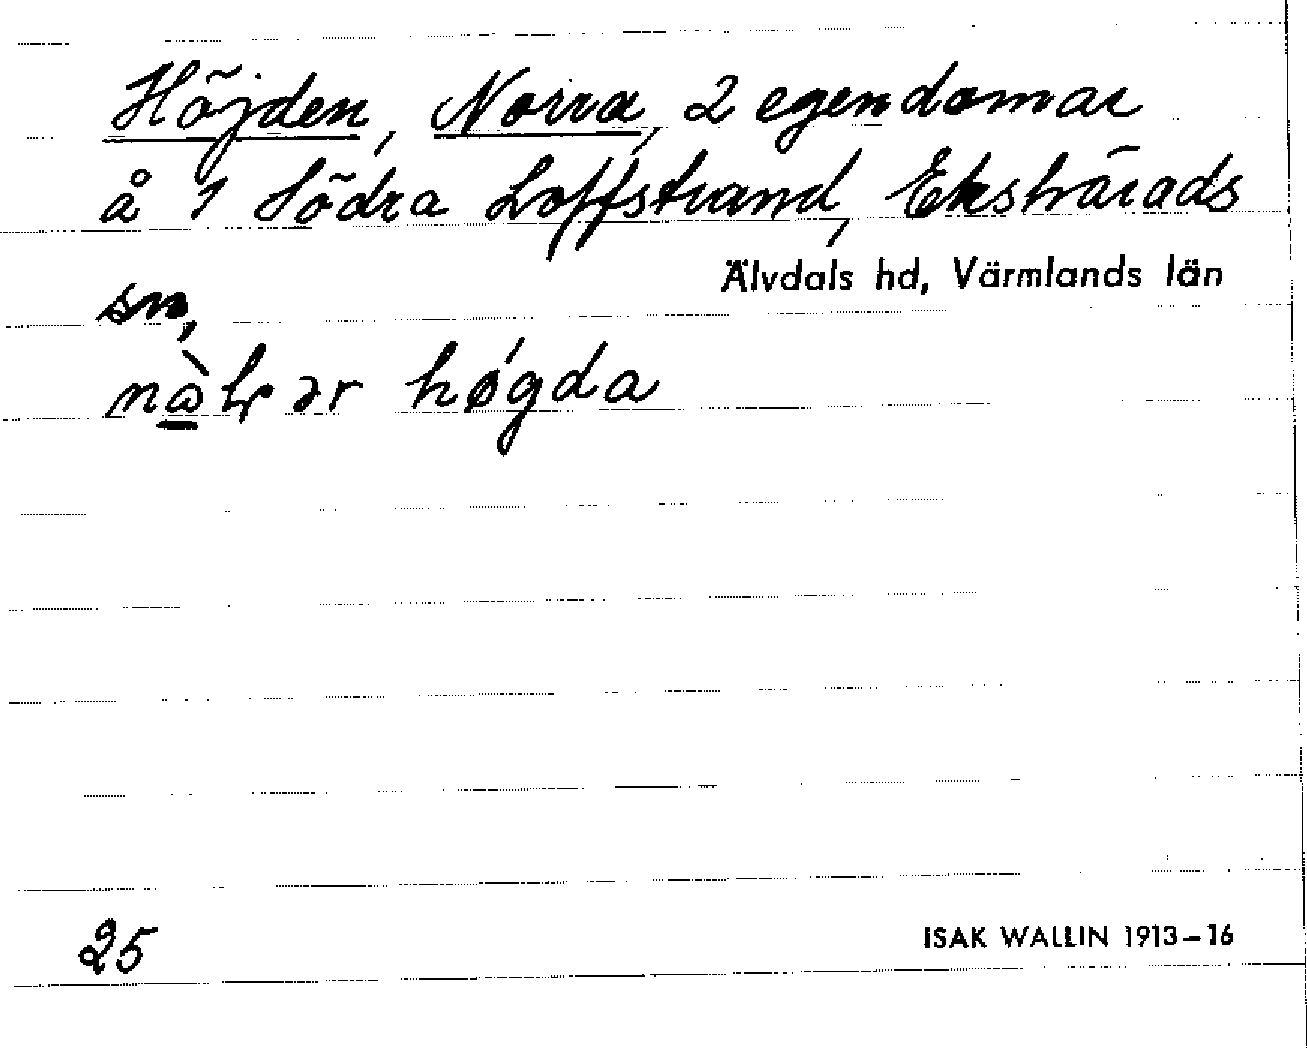 Höjden, Norra, 2 egendomar
å 1 Södra Loffstrand, Ekshärads
Älvdals hd, Värmlands län
sn,
høgda
25
ISAK WALLIN 1913-16